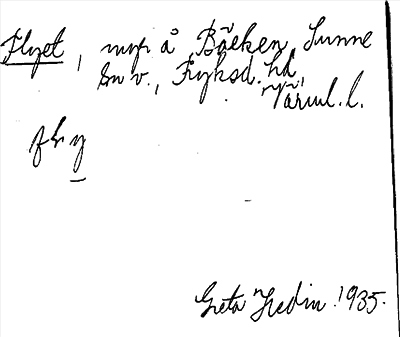 Flyet, myr å Bäcken, Sunne
sn v., Fryksd. hd,
Värml. l.
fly
Greta Hedin 1935.